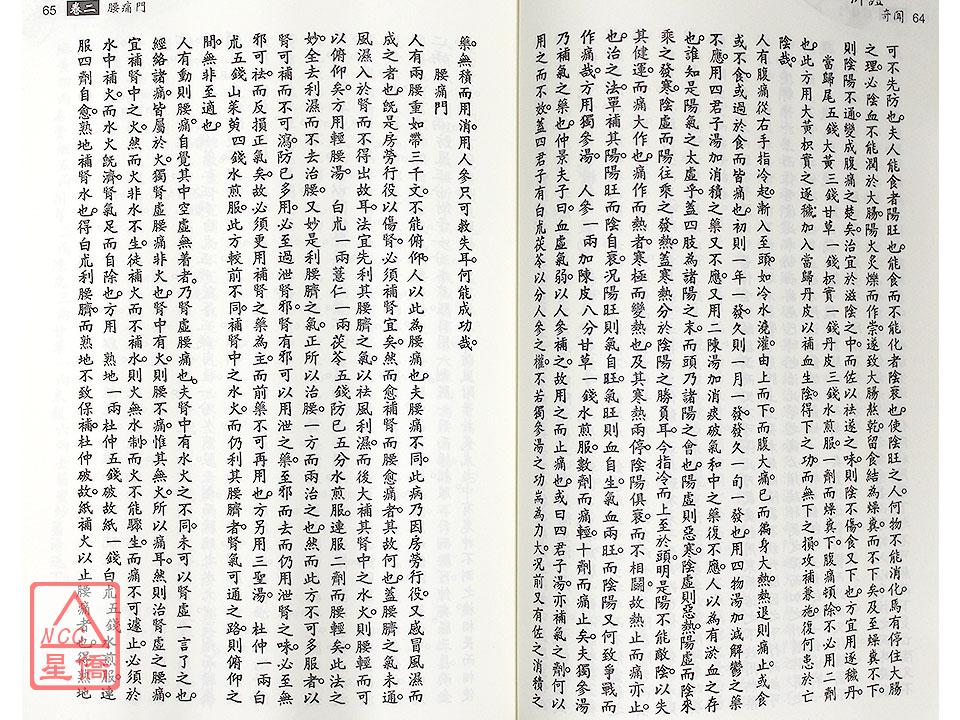 奇聞 64
可不先防也。夫人能食者陽旺也。能食而不能化者陰衰也。使陰旺之人何物不能消化。焉有停住大腸
之理。必陰血不能潤於大腸。陽火炙爍而作祟。遂致大腸熬乾。留食結為燥糞而不下矣。及至燥糞不下。
則陰陽不通。變成腹痛之楚矣。治宜於滋陰之中。而佐以祛逐之味。則陰不傷。食又下也。方宜用逐穢丹
當歸尾五錢大黃三錢甘草一錢枳實一錢丹皮三錢水煎服。一劑而燥糞下。腹痛頓除。不必用二劑
也。此方用大黃枳實之逐穢。加入當歸丹皮以補血生陰。得下之功而無下之損。攻補兼施。復何患於亡
陰哉。
人有腹痛從右手指冷起。漸入至頭。如冷水澆灌。由上而下。而腹大痛。已而徧身大熱。熱退則痛止。或食
或不食。或過於食而皆痛也。初則一年一發。久則一月一發。發久一旬一發也。用四物湯加減解鬱之藥
不應。用四君子湯加消積之藥又不應。又用二陳湯加消痰破氣和中之藥復不應。人以為有淤血之存
也。誰知是陽氣之太虛乎。蓋四肢為諸陽之末。而頭乃諸陽之會也。陽虛則惡寒。陰虛則惡熱。陽虛而陰來
乘之發寒。陰虛而陽往乘之發熱。蓋寒熱分於陰陽之勝負耳。今指冷而上至於頭。明是陽不能敵陰。以失
其健運而痛大作也。痛作而熱者。寒極而變熱也。及其寒熱兩停。陰陽俱衰。而不相鬭。故熱止而痛亦止
也。治之法。單補其陽。陽旺而陰自衰。況陽旺則氣自旺。氣旺則血自生。氣血兩旺。而陰陽又何致爭戰而
作痛哉。方用獨參湯　人參一兩加陳皮八分甘草一錢水煎服。數劑而痛輕。十劑而痛止矣。夫獨參湯
乃補氣之藥也。仲景夫子曰。血虛氣弱。以人參補之。故用之而止痛也。或曰四君子湯亦補氣之劑。何以
用之而不效。蓋四君子有白朮茯苓以分人參之權。不若獨參湯之功耑為力大。況前又有佐之消積之
65 卷二 腰痛門
藥。無積而用消。用人參只可救失耳。何能成功哉。
腰痛門
人有兩腰重如帶三千文。不能俯仰。人以此為腰痛也。夫腰痛不同。此病乃因房勞行役。又感冒風濕而
成之者也。既是房勞行役以傷腎。必須補腎宜矣。然而愈補腎而腰愈痛者。其故何也。蓋腰臍之氣未通
風濕入於腎而不得出故耳。法宜先利其腰臍之氣。以祛風利濕。而後大補其腎中之水火。則腰輕而可
以俯仰矣。方用輕腰湯　白朮一兩薏仁一兩茯苓五錢防己五分水煎服。連服二劑而腰輕矣。此法之
妙。全去利濕而不去治腰。又妙是利腰臍之氣。正所以治腰。一方而兩治之也。然而此方不可多服者。以
腎可補而不可瀉。防己多用。必至過泄腎邪。腎有邪可以用泄之藥。至邪而去而仍用泄腎之味。必至無
邪可祛。而反損正氣矣。故必須更用補腎之藥為主。而前藥不可再用也。方另用三聖湯　杜仲一兩白
朮五錢山茱萸四錢水煎服。此方較前不同。補腎中之水火。而仍利其腰臍者。腎氣可通之路。則俯仰之
間無非至適也。
人有動則腰痛。自覺其中空虛無着者。乃腎虛腰痛也。夫腎中有水火之不同。未可以腎虛一言了之也。
經絡諸痛。皆屬於火。獨腎虛腰痛非火也。腎中有火則腰不痛。惟其無火所以痛耳。然則治腎虛之腰痛
宜補腎中之火。然而火非水不生。徒補火而不補水。則火無水制。而火不能驟生。而痛不可遽止。必須於
水中補火。而水火既濟。腎氣足而自除也。方用　熟地一兩杜仲五錢破故紙一錢白朮五錢水煎服。連
服四劑自愈。熟地補腎水也。得白朮利腰臍。而熟地不致保補。杜仲破故紙補火以止腰痛者也。得熟地
NCC
星橋